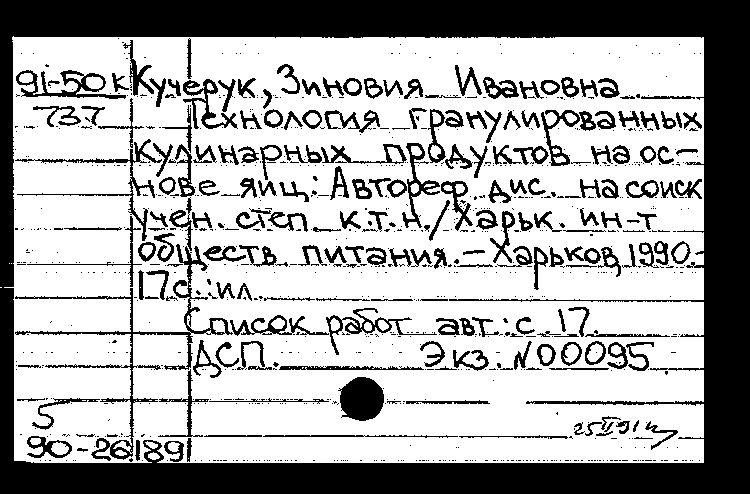 91-50к Кучерук, Зиновия Ивановна.
737 Технология гранулированных
кулинарных продуктов на ос-
нове яиц: Автореф. дис. на соиск
учен. степ. к.т.н./Харьк. ин-т
обществ. питания. – Харьков, 1990.-
17с.:ил.
Список работ авт.: с. 17.
ДСП. Экз. №00095
5
90-26189
25 II 91